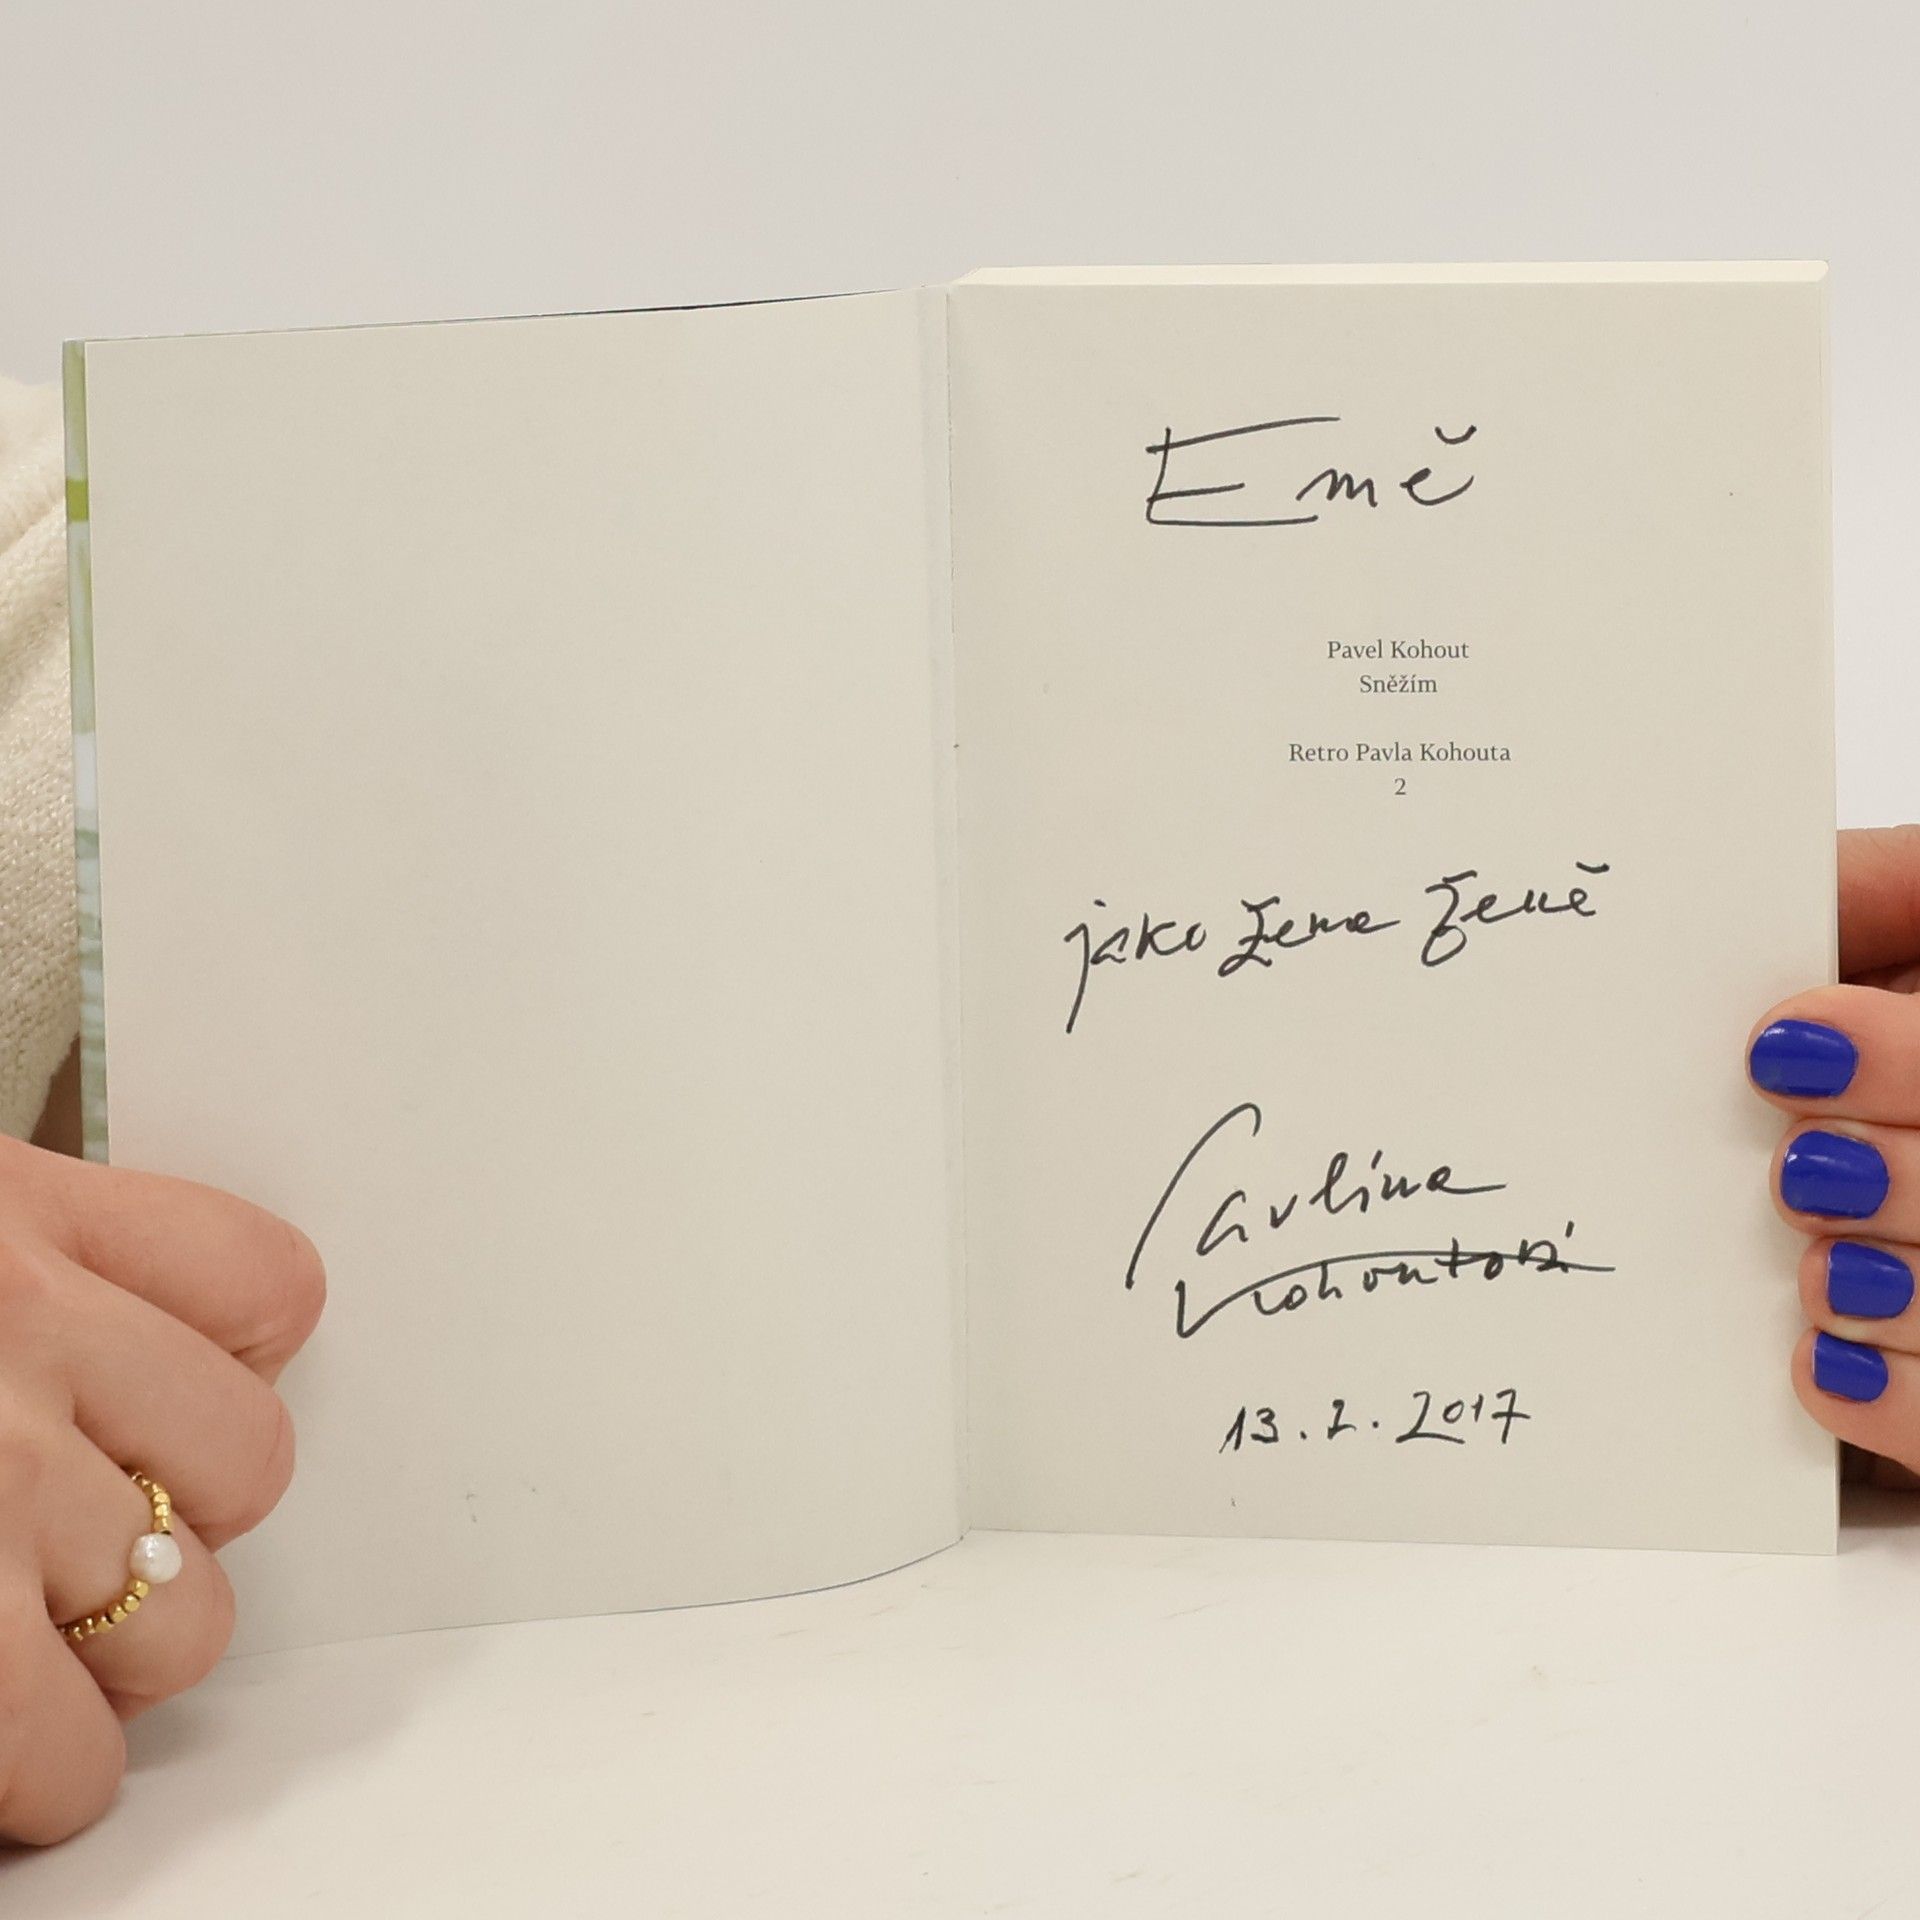 Emě
Pavel Kohout
Sněžím
Retro Pavla Kohouta
2
jako žena ženě
Pavlína
Kohoutová
13. 2. 2017